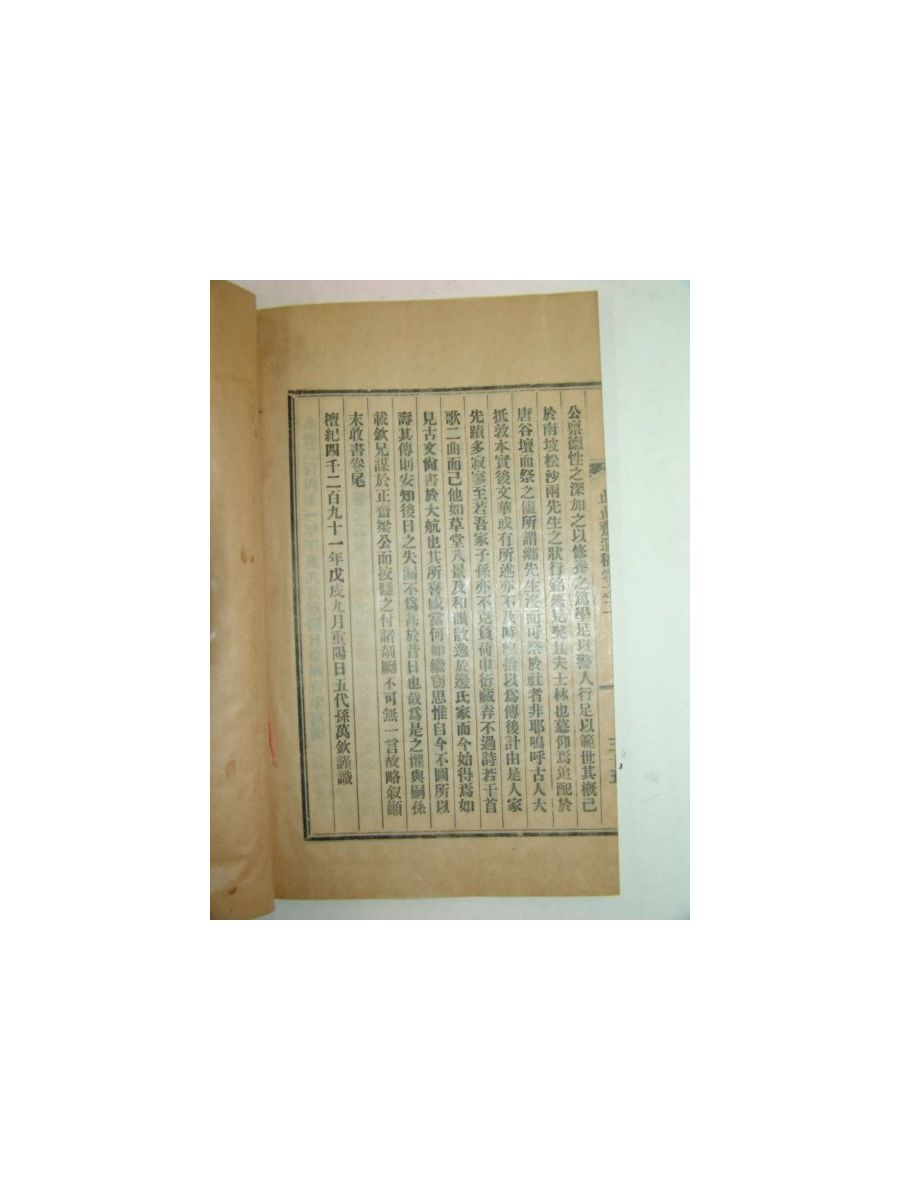 止止齋遺稿卷之二
三十五
公禀德性之深加之以修養之篤學足以警人行足以範世其槪已
於南坡松沙兩先生之狀行銘幾見矣且夫士林也慕仰焉追配於
唐谷壇而祭之儘所謂鄉先生沒而可祭於社者非耶嗚呼古人大
抵敦本實後文華或有所述亦不及時收拾以爲傳後計由是人家
先蹟多寂寥至若吾家子孫亦不克負荷巾衍藏弆不過詩若干首
歌二曲而已他如草堂八景及和韻散逸於邊氏家而今始得焉如
見古文尙書於大航也其所喜感當何如繼竊思惟曰今不圖所以
壽其傳則安知後日之失漏不爲甚於昔日也哉爲是之懼與嗣孫
載欽兄謀於正齋梁公面挍讎之付諸剞劂不可無一言故略叙顚
末敢書卷尾
檀紀四千二百九十一年戊戌九月重陽日五代孫萬欽謹識